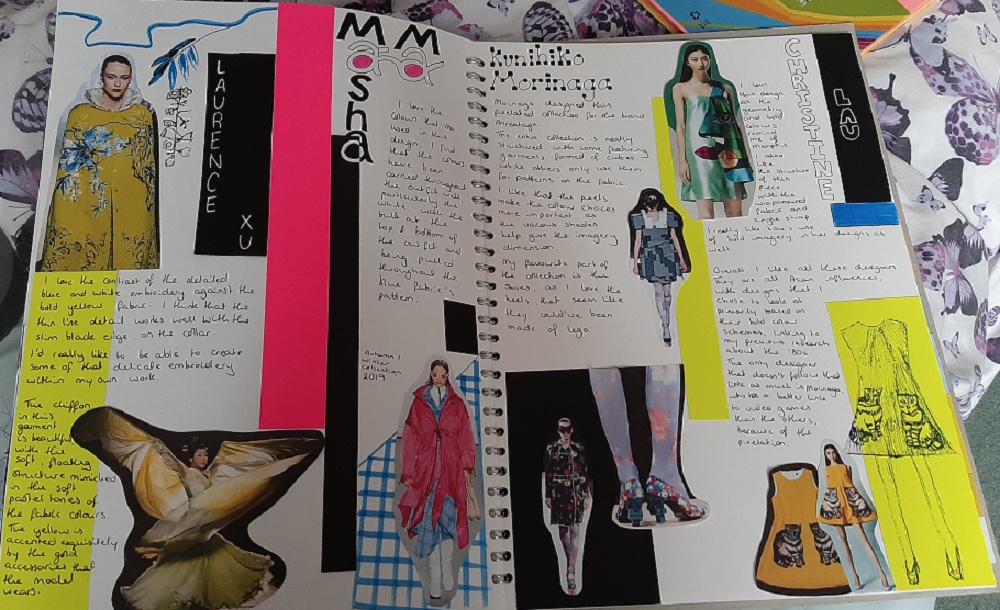 LAURENCE
XU
I love the contrast of the detailed
blue and white embroidery against the
bold yellow fabric. I think that the
this line detail works well with the
slim black edge on the collar.
I'd really like to be able to create
some of that delicate embroidery
within my own work
The chiffon
in this
garment
is beautiful
with the
soft, floating
structure mimicked
in the soft
pastel tones of
the fabric colours.
The yellow is
accented exquisitely
by the gold
accessories that
the model
wears.
MM
sha
I love the
colours that
used in this
design. I find
that the colours
have been
carried throughout
the outfit well
particularly the
white, with the
bulk at the
top & bottom of
the outfit and
being pulled
throughout the
blue fabric's
pattern.
Autumn /
Winter
Collection
2019
Kunihiko
Morinaga
Morinaga designed this
pixelated collection for the brand
Anrealage.
The entire collection is neatly
structured, with some featuring
garments formed of cubes.
whilst others only use them
for patterns on the fabric.
I like that the pixels
make the colour choices
more important, as
the various shades
help give the imagery
dimension.
My favourite part of
the collection is the
shoes, as I love the
heels, that seem like
they could've been
made of Lego
CHRISTINE
LAU
I love
this design
as the
geometry
and bold
colours
remind
me of
Memphis
I also
like
the structure
of this
piece
with the
fabric and
strap
I really like Lau's use
of bold imagery in her designs as
well.
Overall, I like all these designers
They are all Asian influences,
with designs that I
chose to look at
primarily based on
their bold colour
schemes, linking to
my previous research
about the '80s
The only designer
that doesn't follow that
link as much is Morinaga,
who has a better link
to video games
than the others,
because of the
pixelation.